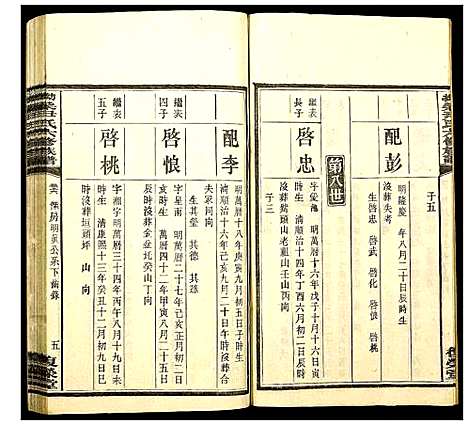 子五
配彭
明隆慶 年八月二十日辰時生
沒葬失考
生啓忠 啓武 啓化 啓悢 啓桃
第八世
繼表長子
啓忠
明萬曆十六年戊子十月十六日寅
順治十四年丁酉六月初二日辰時
沒葬鴛頭山老祖山壬山丙向
子三
配李
明萬曆十八年庚寅九月初五日戌時生
清順治十六年己亥九月二十日酉時沒葬合
夫冢同向
生其 其德 其
繼表四子
啓悢
字星南 明萬曆二十七年己亥正月初二日
時生 萬曆四十二年甲寅八月二十五日
亥時沒葬金盆圫癸山丁向
繼表五子
啓桃
字 明萬曆三十四年丙午八月十九日未
時生 清康熙十三年癸丑十二月初九日巳
時沒葬垣頭坪 山 向
氏六修族譜
五